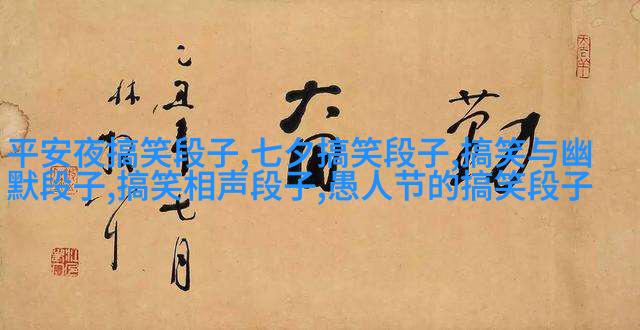 勤奋
乙丑年七月
林
平安夜搞笑段子,七夕搞笑段子,搞笑与幽
默段子,搞笑相声段子,愚人节的搞笑段子